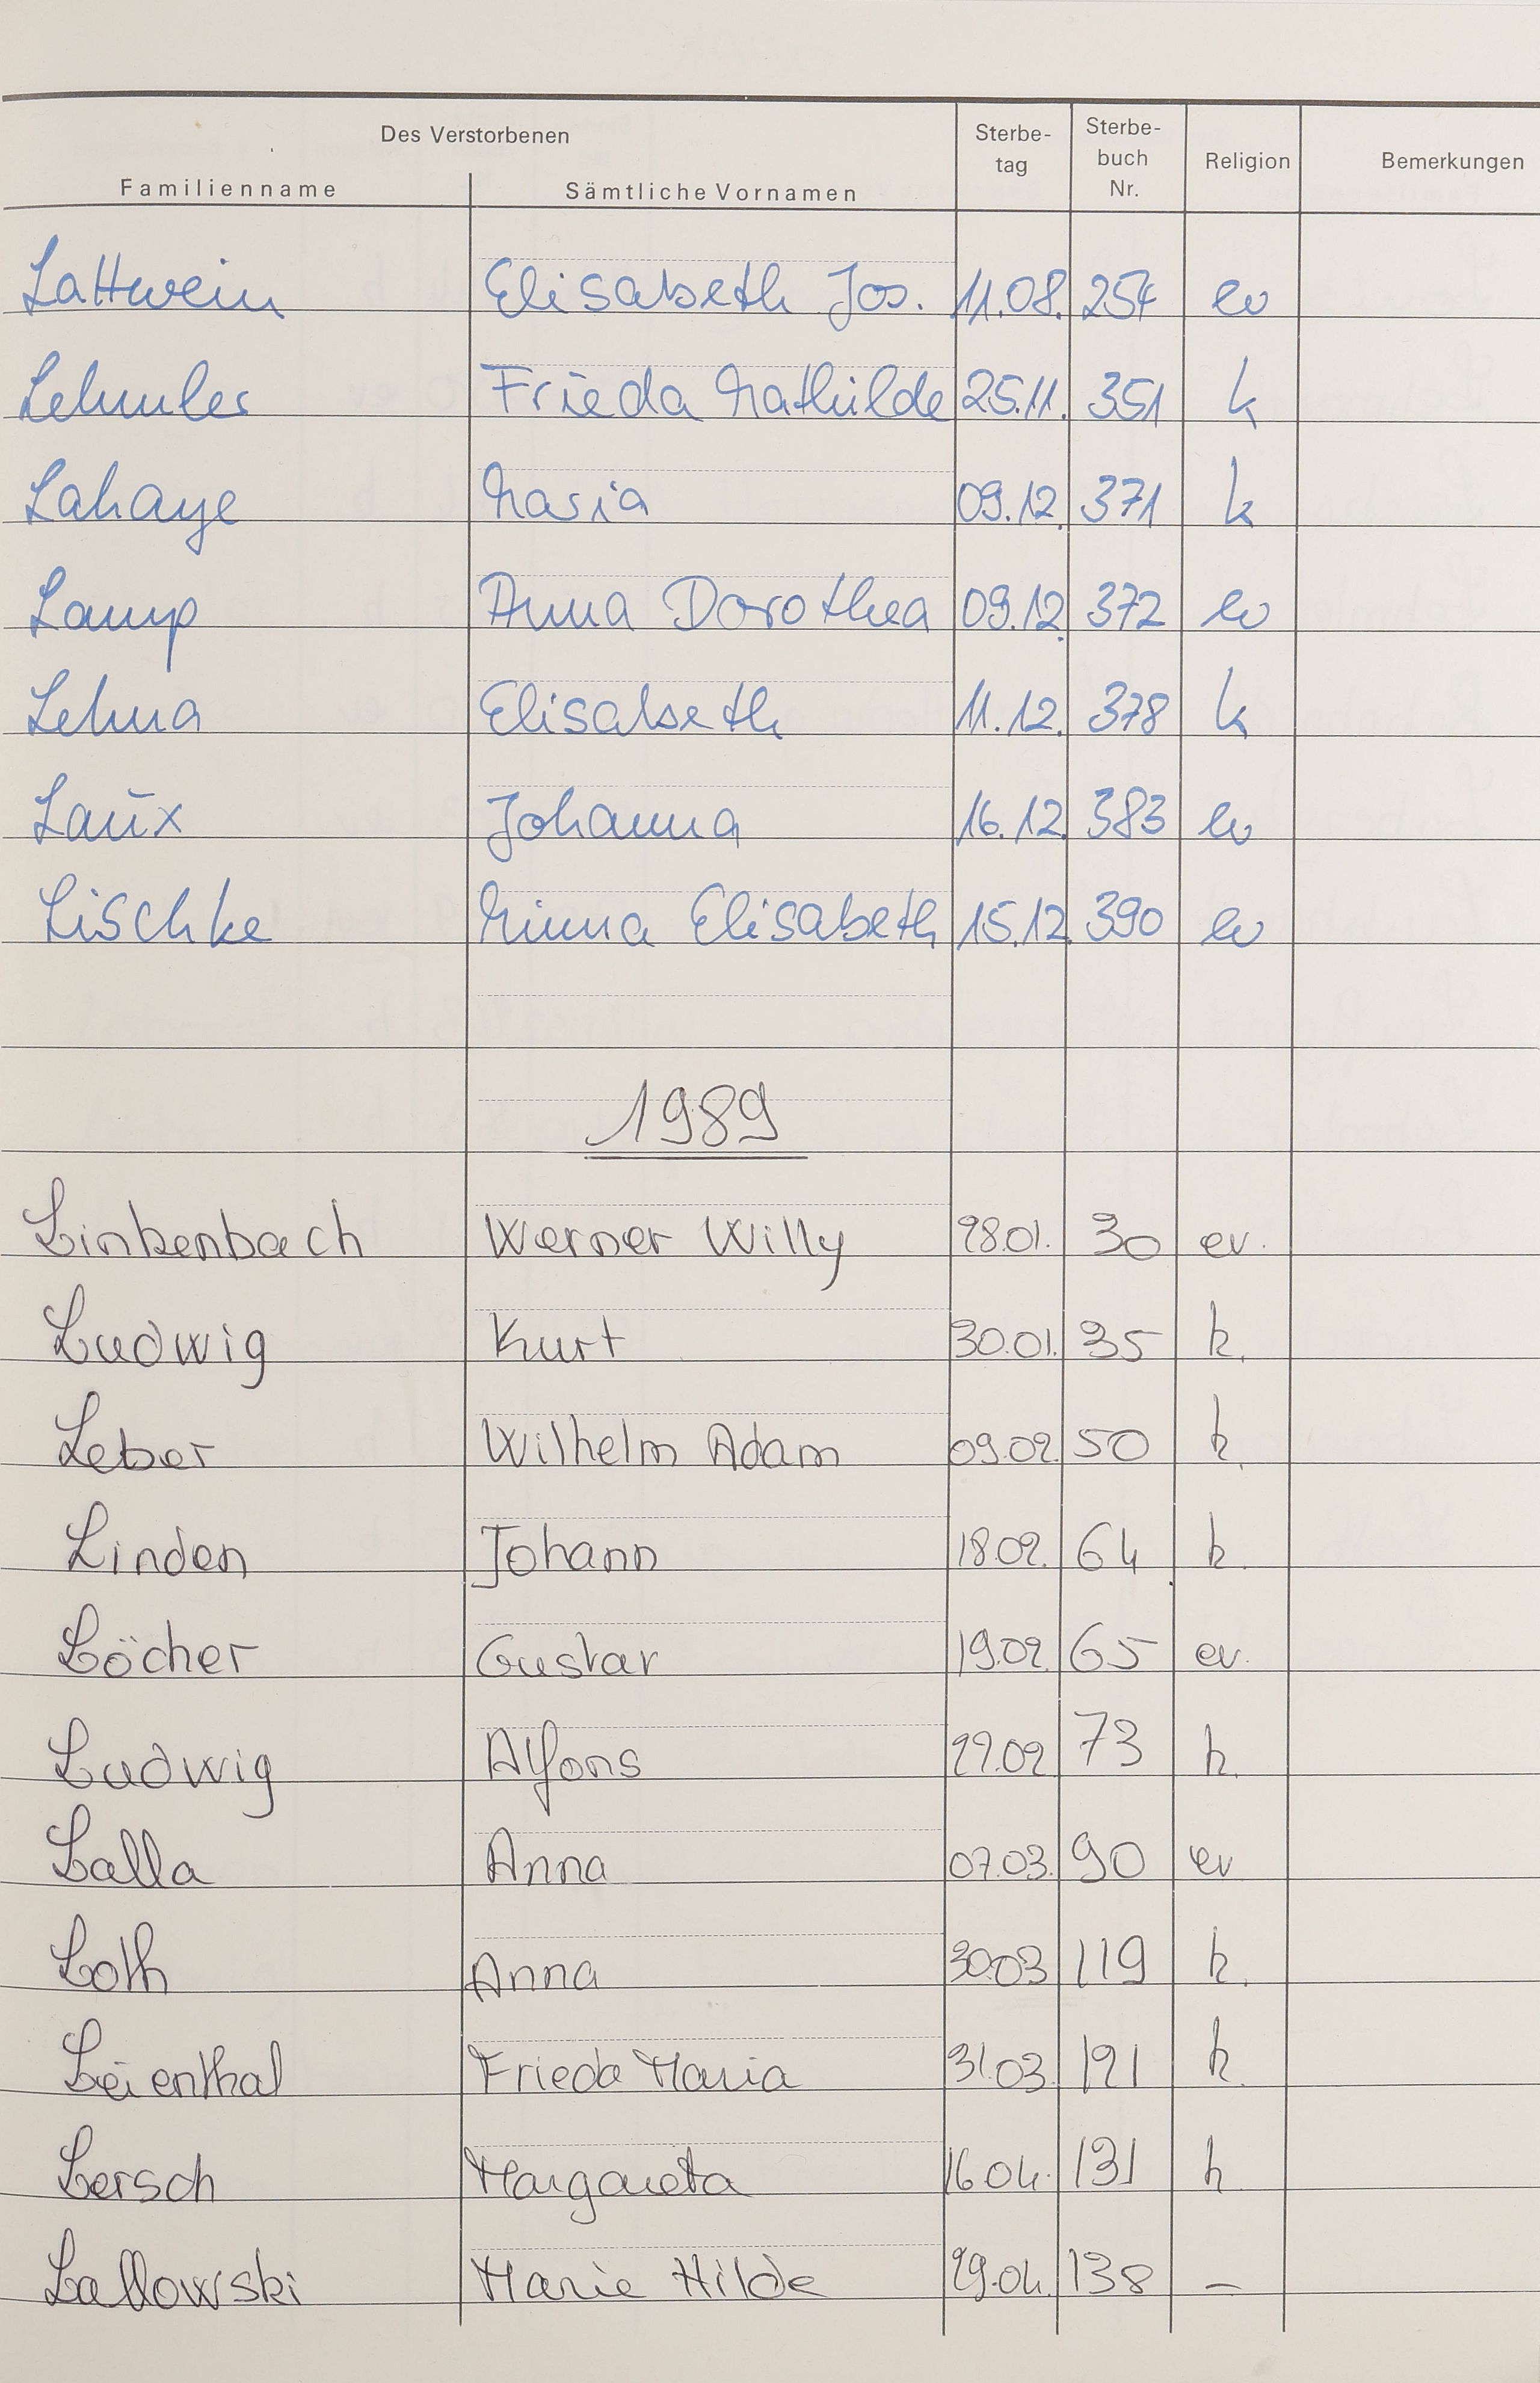 Des Verstorbenen
Familienname Sämtliche Vornamen Sterbe-tag Sterbe-buch Nr. Religion Bemerkungen
Lattwein Elisabeth Jos. 11.08. 254 ev
Lehmler Frieda Mathilde 25.11. 351 k
Lahaye Maria 09.12. 371 k
Lamp Anna Dorothea 09.12. 372 ev
Lehna Elisabeth 11.12. 378 k
Laux Johanna 16.12. 383 ev
Lischke Minna Elisabeth 15.12. 390 ev
1989
Linkenbach Werner Willy 28.01. 30 ev.
Ludwig Kurt 30.01. 35 k.
Leber Wilhelm Adam 09.02. 50 k.
Linden Johann 18.02. 64 k.
Löcher Gustav 19.02. 65 ev.
Ludwig Alfons 27.02 73 k.
Lalla Anna 07.03. 90 ev
Loth Anna 30.03 119 k.
Leienthal Frieda Maria 31.03. 121 k.
Lersch Margareta 16.04. 131 k
Lallowski Marie Hilde 29.04. 138 –